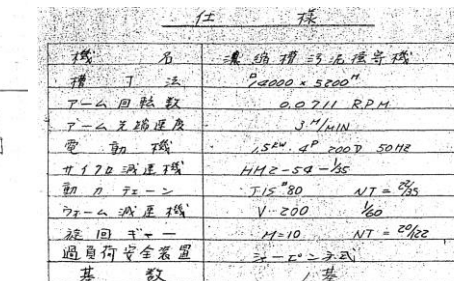 仕 様
機 名 濃縮槽汚泥掻寄機
槽 寸 法 14000 × 5200H
アーム回転数 0.0711 RPM
アーム先端速度 3 M/MIN
電 動 機 1.5KW 4P 200V 50HZ
サイクロ減速機 HM2-54-1/35
動力チェーン JIS #80 NT=
ウォーム減速機 V-200 1/60
旋回ギヤー M=10 NT=
過負荷安全装置 シャーピン方式
基 数 1基